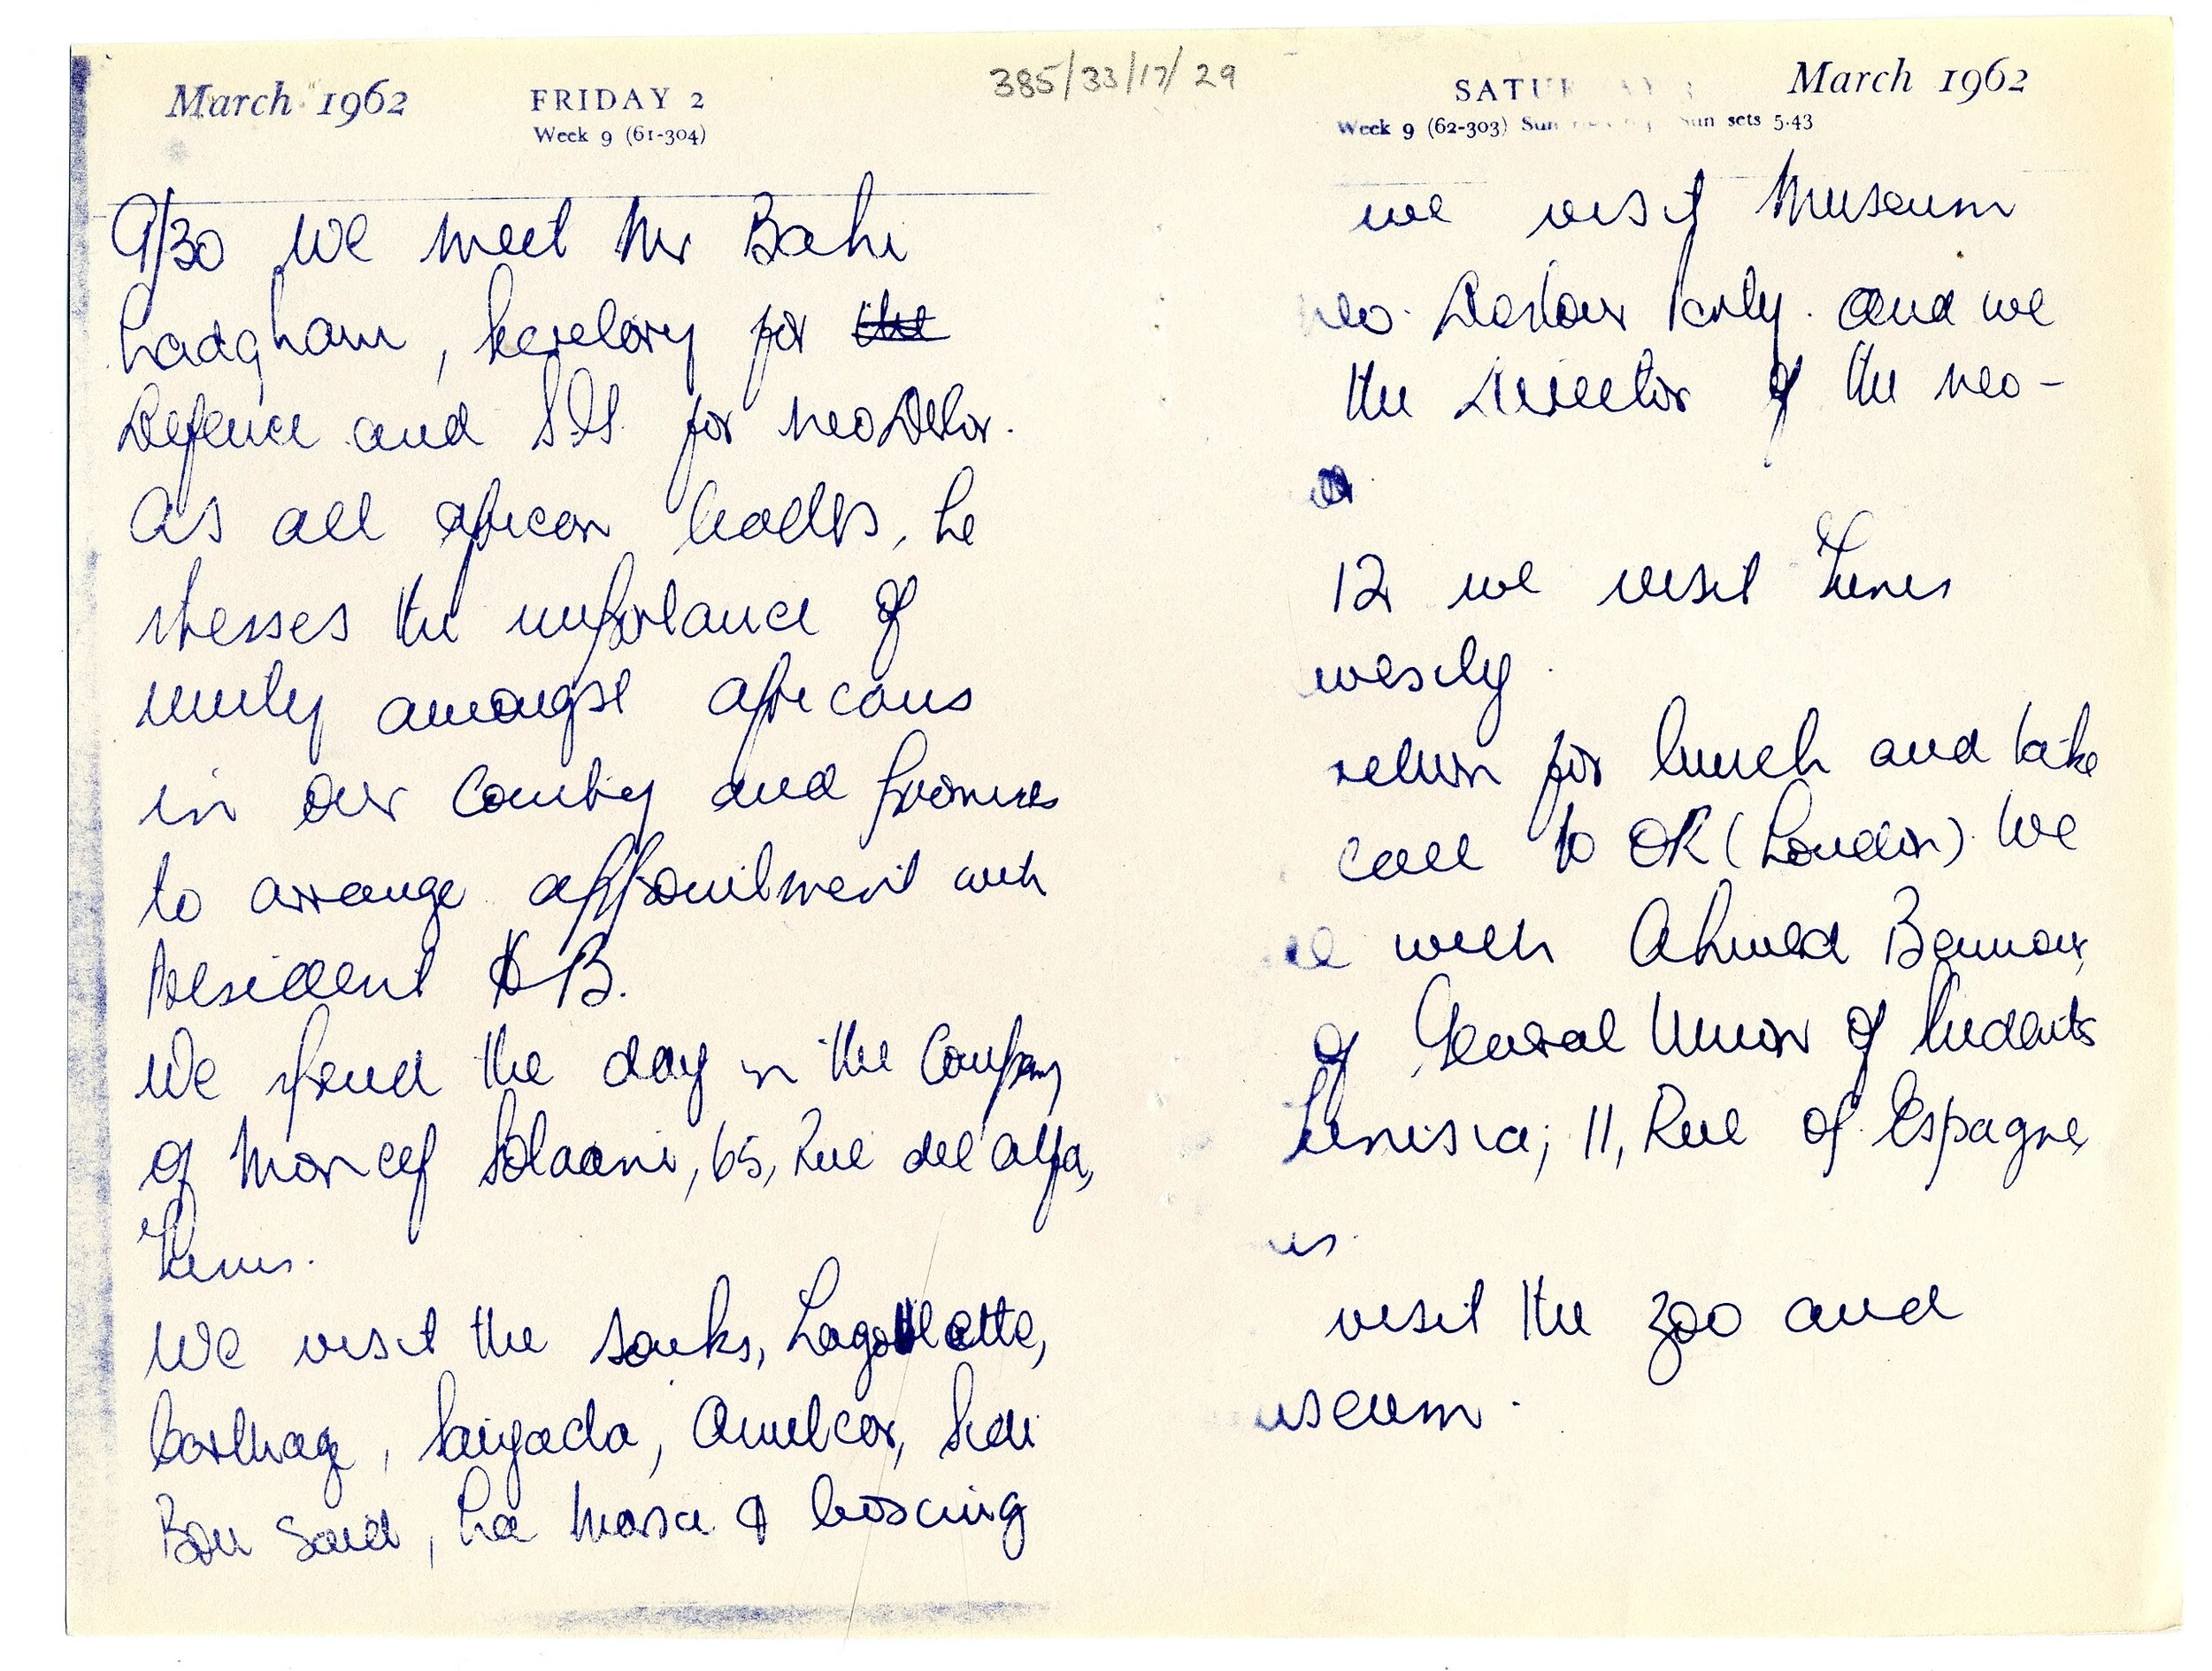 385/33/17/29
March 1962 FRIDAY 2
Week 9 (61-304)
9/30 We meet Mr Bahi
Ladgham, Secretary for the
Defence and S.G. for neo Destor.
As all african leaders, he
stresses the importance of
unity amongst africans
in our country and promises
to arrange appointment with
President HB.
We spend the day in the company
of Moncef 65, Rue del alfa,
Tunis.
We visit the souks, Lagoullette,
Carthage, Amilcar, Sidi
Bou Said, La Marsa & boxcing
March 1962
Week 9 (62-303) Sun sets 5.43
we visit Museum
neo Destour Party. and we
the Director of the neo-
12 we visit Tunis
return for lunch and take
call to OR (London). We
with Ahmed
of General Union of Students
Tunisia; 11, Rue of Espagne,
is.
visit the zoo and
useum.